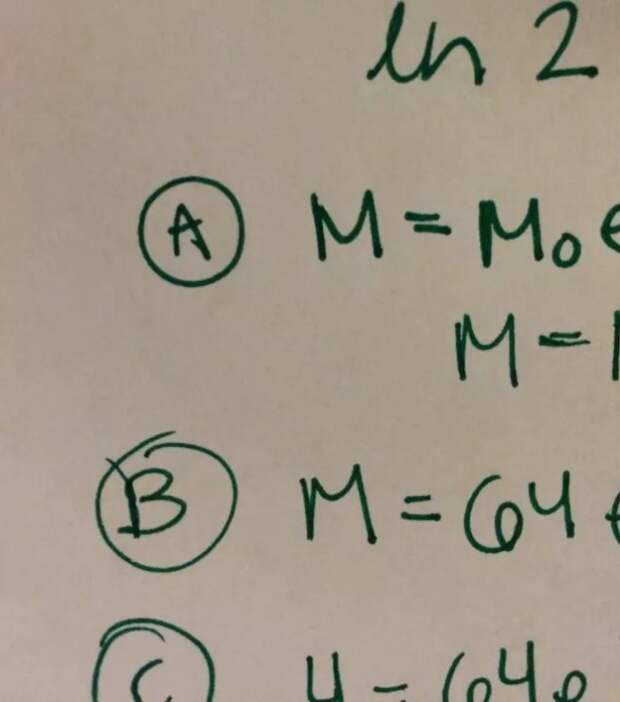 ln 2
A M = M₀ e
M =
B M = 64 e
C 4 = 64 e